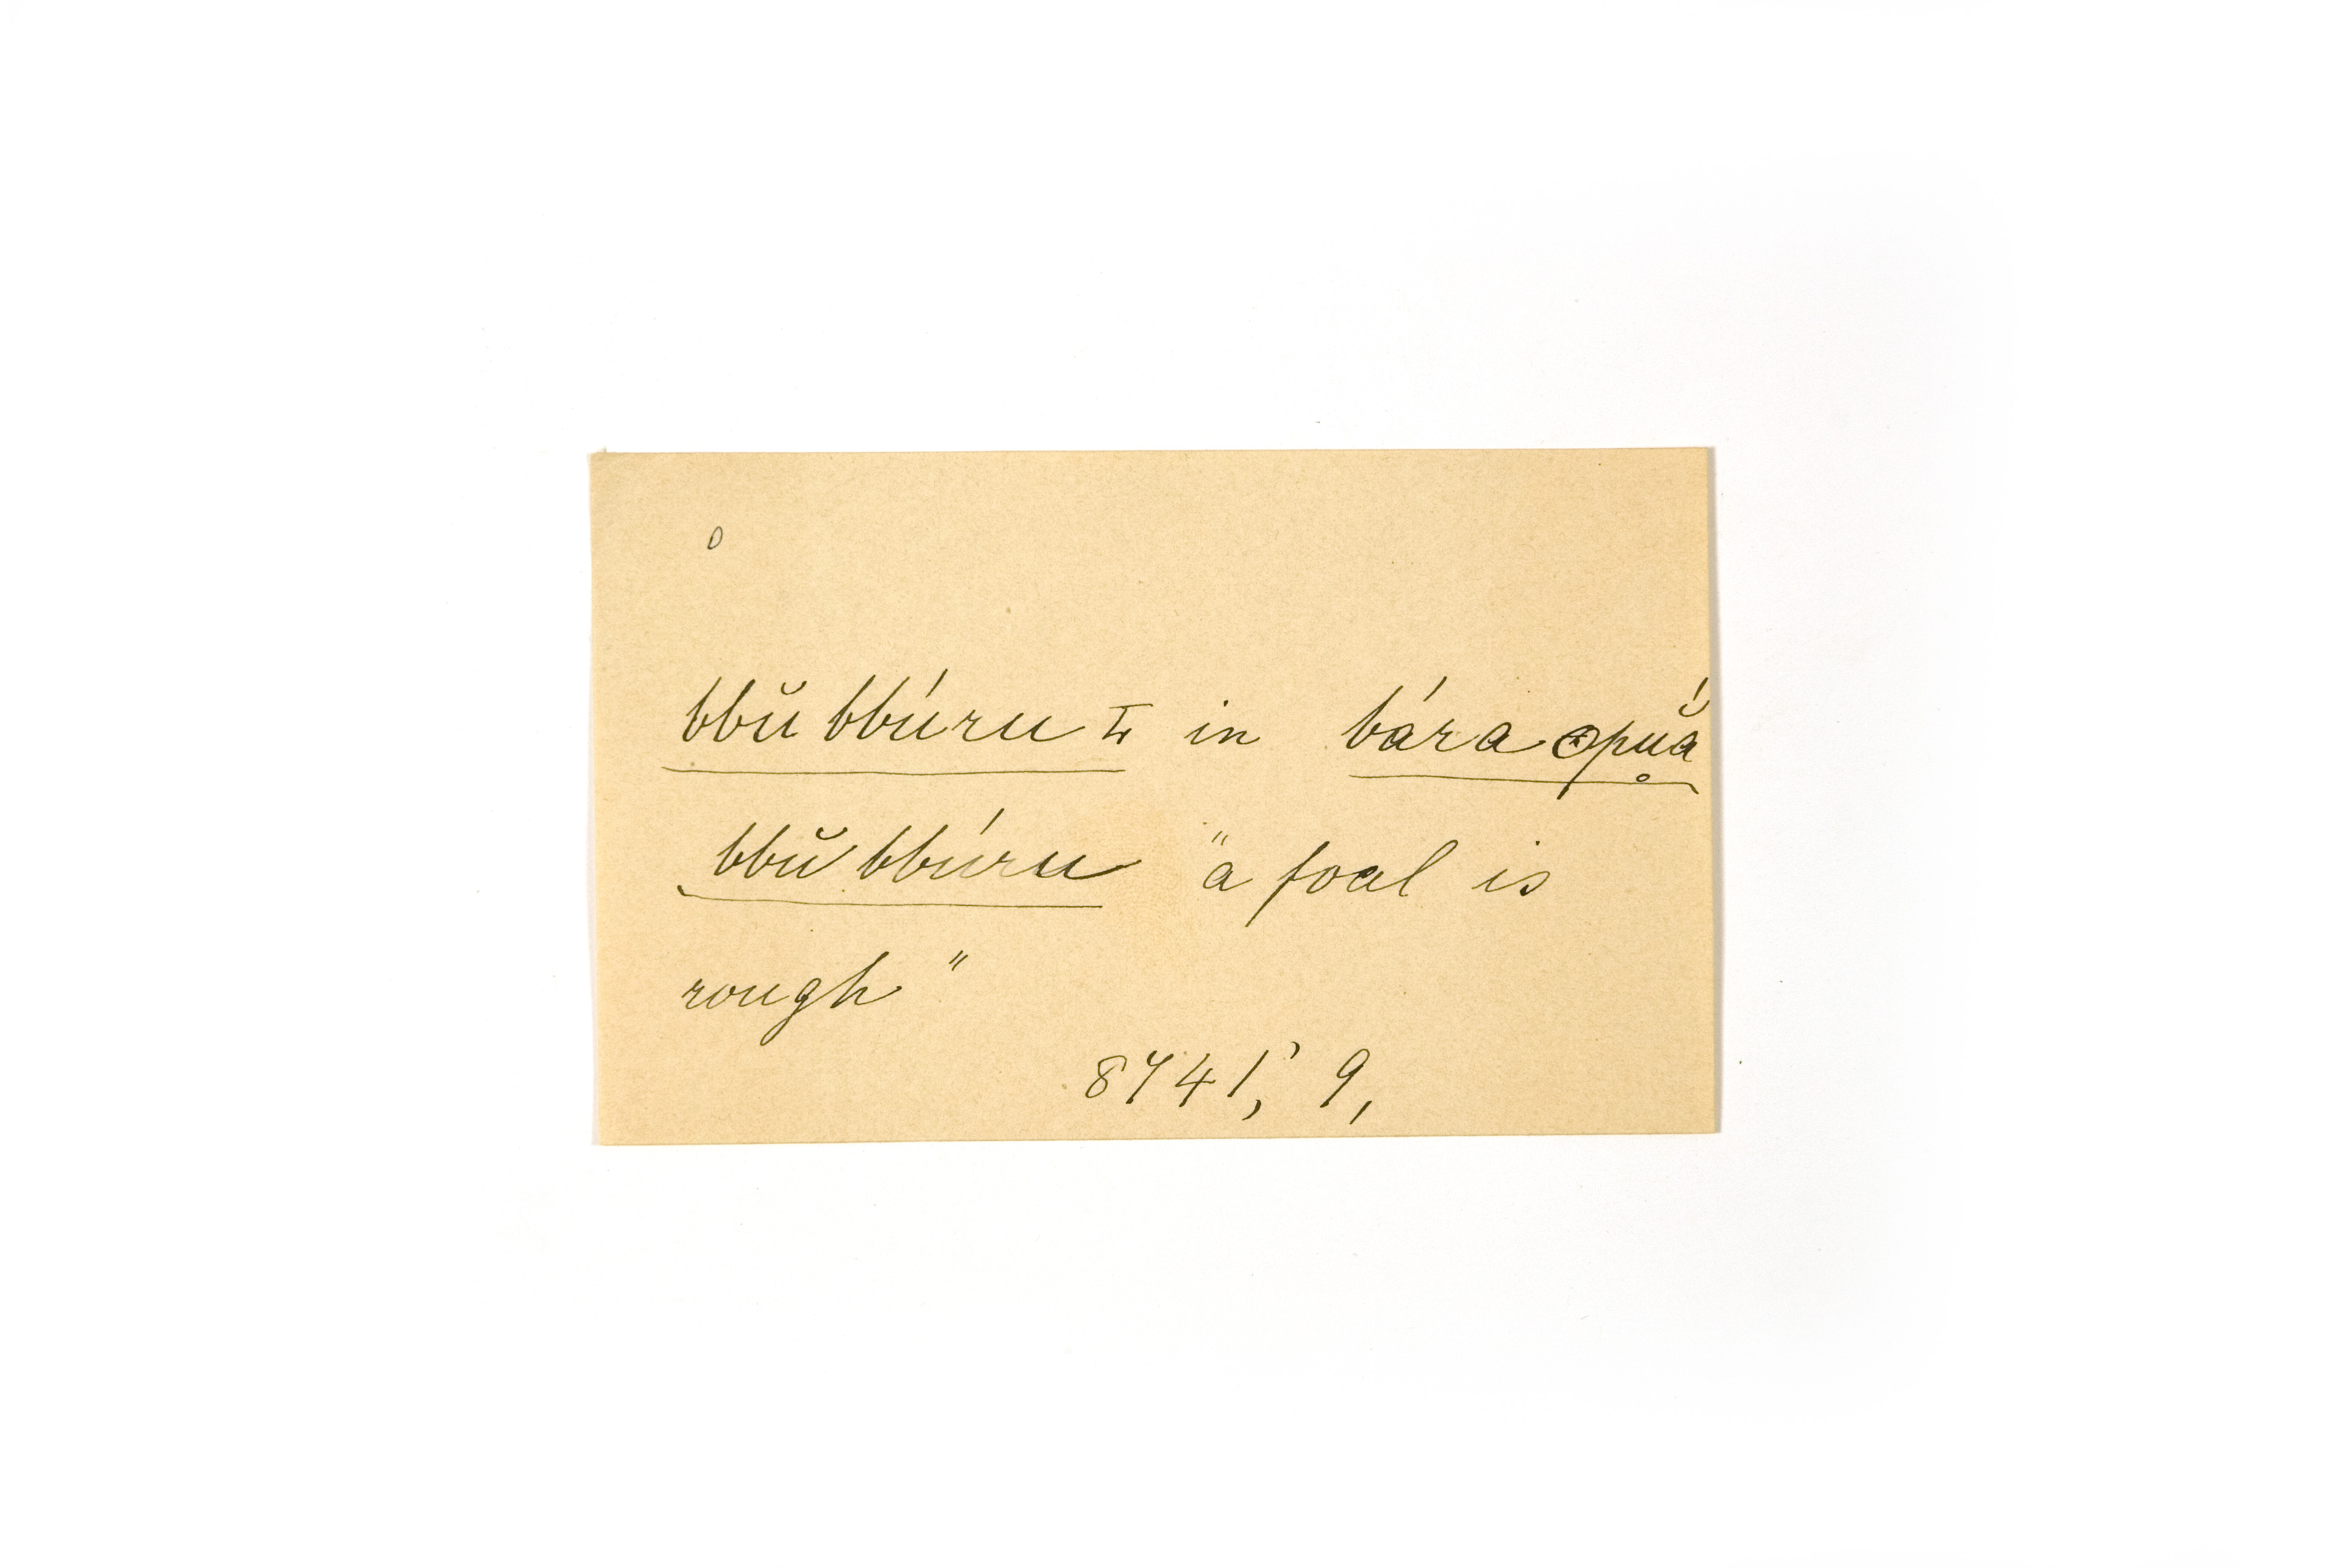 0
bbŭ bbúru I in bára ʘpŭá̰
bbŭ bbúru "a foal is
rough"
8741,' 9,